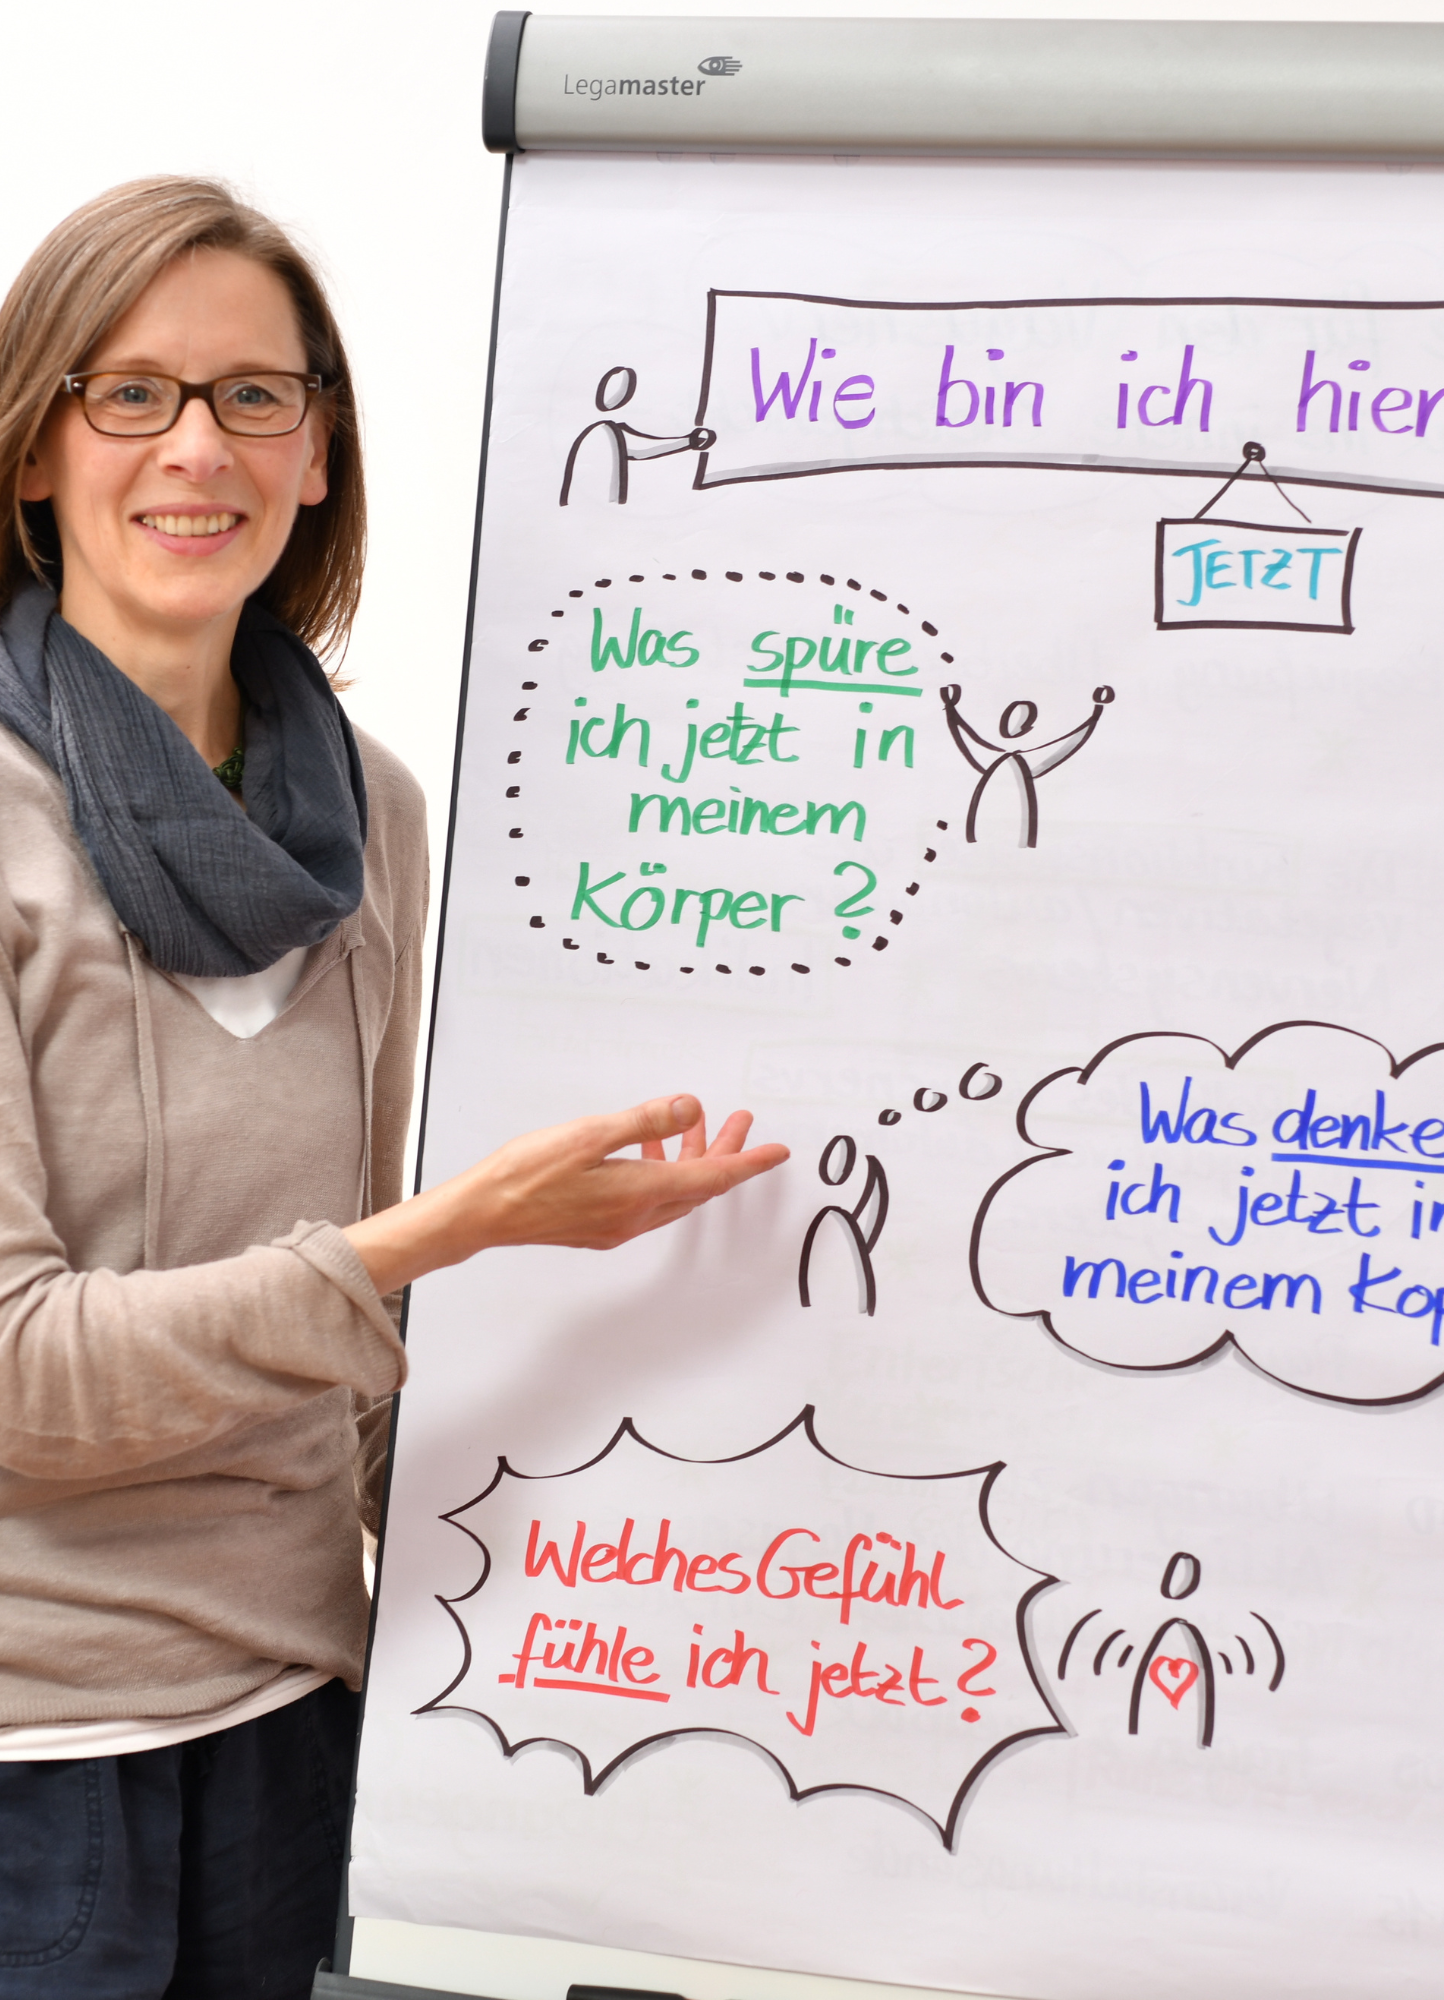 Legamaster
Wie bin ich hier
JETZT
Was spüre
ich jetzt in
meinem
Körper?
Was denke
ich jetzt
meinem
Welches Gefühl
fühle ich jetzt?